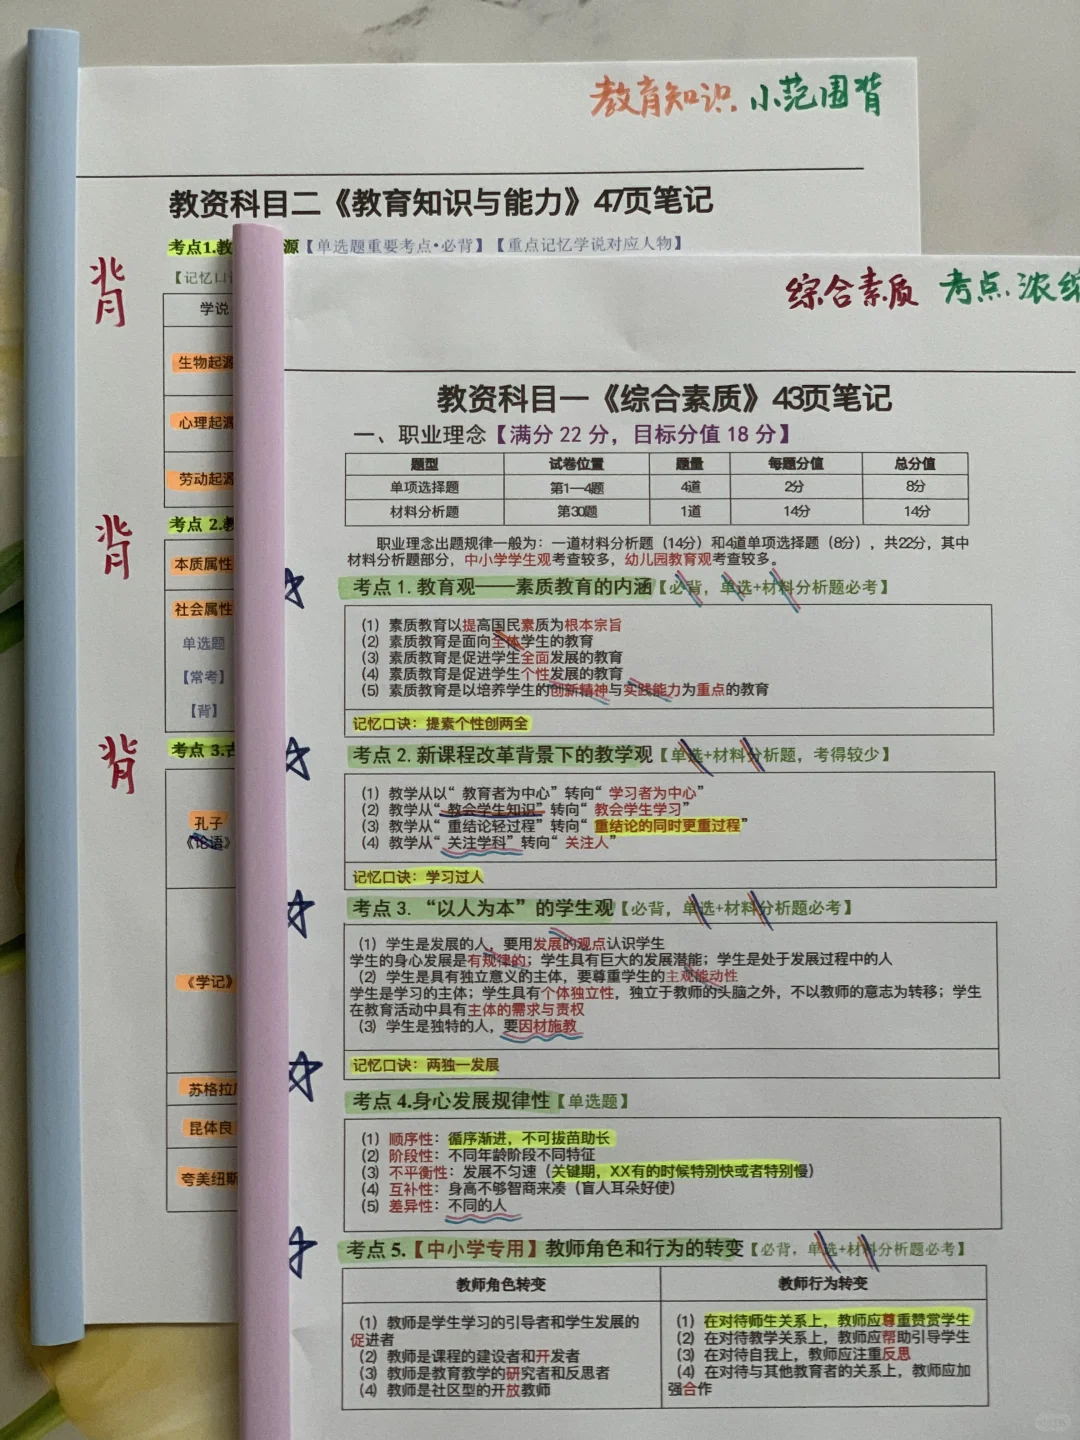 教育知识 小范围背
教资科目二《教育知识与能力》47页笔记
考点1.教
源【单选题重要考点•必背】【重点记忆学说对应人物】
【记忆口
学说
生物起源
心理起源
劳动起源
考点 2.
本质属性
社会属性
单选题
【常考】
【背】
考点 3.古
孔子
《论语》
《学记》
苏格拉
昆体良
夸美纽斯
背
背
背
综合素质 考点浓
教资科目一《综合素质》43页笔记
一、职业理念【满分 22 分，目标分值 18 分】
题型 试卷位置 题量 每题分值 总分值
单项选择题 第1—4题 4道 2分 8分
材料分析题 第30题 1道 14分 14分
职业理念出题规律一般为：一道材料分析题（14分）和4道单项选择题（8分），共22分，其中
材料分析题部分，中小学学生观考查较多，幼儿园教育观考查较多。
考点 1. 教育观——素质教育的内涵【必背，单选+材料分析题必考】
(1) 素质教育以提高国民素质为根本宗旨
(2) 素质教育是面向全体学生的教育
(3) 素质教育是促进学生全面发展的教育
(4) 素质教育是促进学生个性发展的教育
(5) 素质教育是以培养学生的创新精神与实践能力为重点的教育
记忆口诀：提素个性创两全
考点 2. 新课程改革背景下的教学观【单选+材料分析题，考得较少】
(1) 教学从以“教育者为中心”转向“学习者为中心”
(2) 教学从“教会学生知识”转向“教会学生学习”
(3) 教学从“重结论轻过程”转向“重结论的同时更重过程”
(4) 教学从“关注学科”转向“关注人”
记忆口诀：学习过人
考点 3. “以人为本”的学生观【必背，单选+材料分析题必考】
(1) 学生是发展的人，要用发展的观点认识学生
学生的身心发展是有规律的；学生具有巨大的发展潜能；学生是处于发展过程中的人
(2) 学生是具有独立意义的主体，要尊重学生的主观能动性
学生是学习的主体；学生具有个体独立性，独立于教师的头脑之外，不以教师的意志为转移；学生
在教育活动中具有主体的需求与责权
(3) 学生是独特的人，要因材施教
记忆口诀：两独一发展
考点 4.身心发展规律性【单选题】
(1) 顺序性：循序渐进，不可拔苗助长
(2) 阶段性：不同年龄阶段不同特征
(3) 不平衡性：发展不匀速（关键期，XX有的时候特别快或者特别慢）
(4) 互补性：身高不够智商来凑（盲人耳朵好使）
(5) 差异性：不同的人
考点 5.【中小学专用】教师角色和行为的转变【必背，单选+材料分析题必考】
教师角色转变 教师行为转变
(1) 教师是学生学习的引导者和学生发展的
促进者
(2) 教师是课程的建设者和开发者
(3) 教师是教育教学的研究者和反思者
(4) 教师是社区型的开放教师
(1) 在对待师生关系上，教师应尊重赞赏学生
(2) 在对待教学关系上，教师应帮助引导学生
(3) 在对待自我上，教师应注重反思
(4) 在对待与其他教育者的关系上，教师应加
强合作